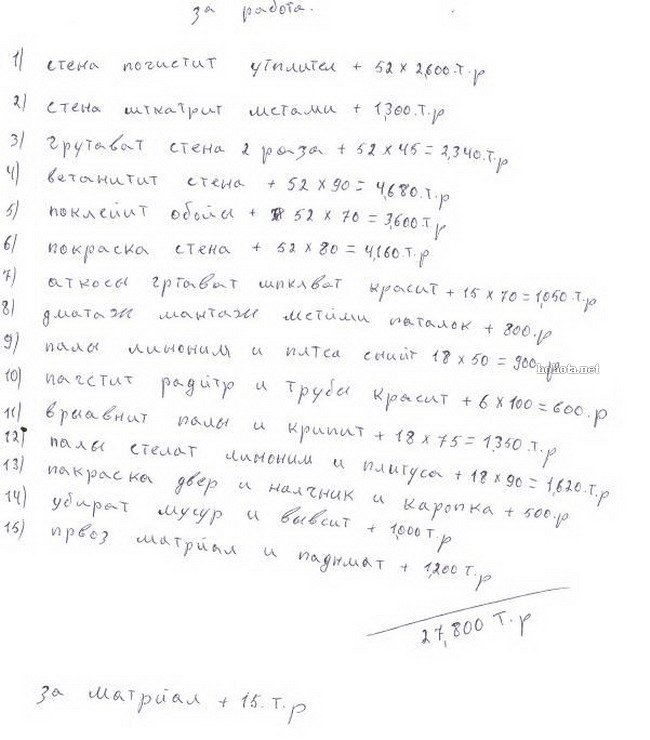 за работа.
1) стена почистит утплител + 52 x 2,600.т.р
2) стена шткатрит местами + 1,300.т.р
3) грутават стена 2 раза + 52 x 45 = 2,340.т.р
4) ветанитит стена + 52 x 90 = 4,680.т.р
5) поклейит обойы + 52 x 70 = 3,600т.р
6) покраска стена + 52 x 80 = 4,160.т.р
7) аткосы гртават шпклват красит + 15 x 70 = 1,050.т.р
8) дматаж мантаж местими паталок + 800.р
9) палы линоним и плтса снийт 18 x 50 = 900.р
hohota.net
10) пагстит радйтр и трубы красит + 6 x 100 = 600.р
11) врыавнит палы и крипит + 18 x 75 = 1,350.т.р
12) палы стелат линоним и плитуса + 18 x 90 = 1,620.т.р
13) пакраска двер и налчник и каропка + 500.р
14) убират мусур и вывсит + 1,000т.р
15) првоз матрйал и паднмат + 1,200 т.р
27,800 т.р
за матрйал + 15.т.р